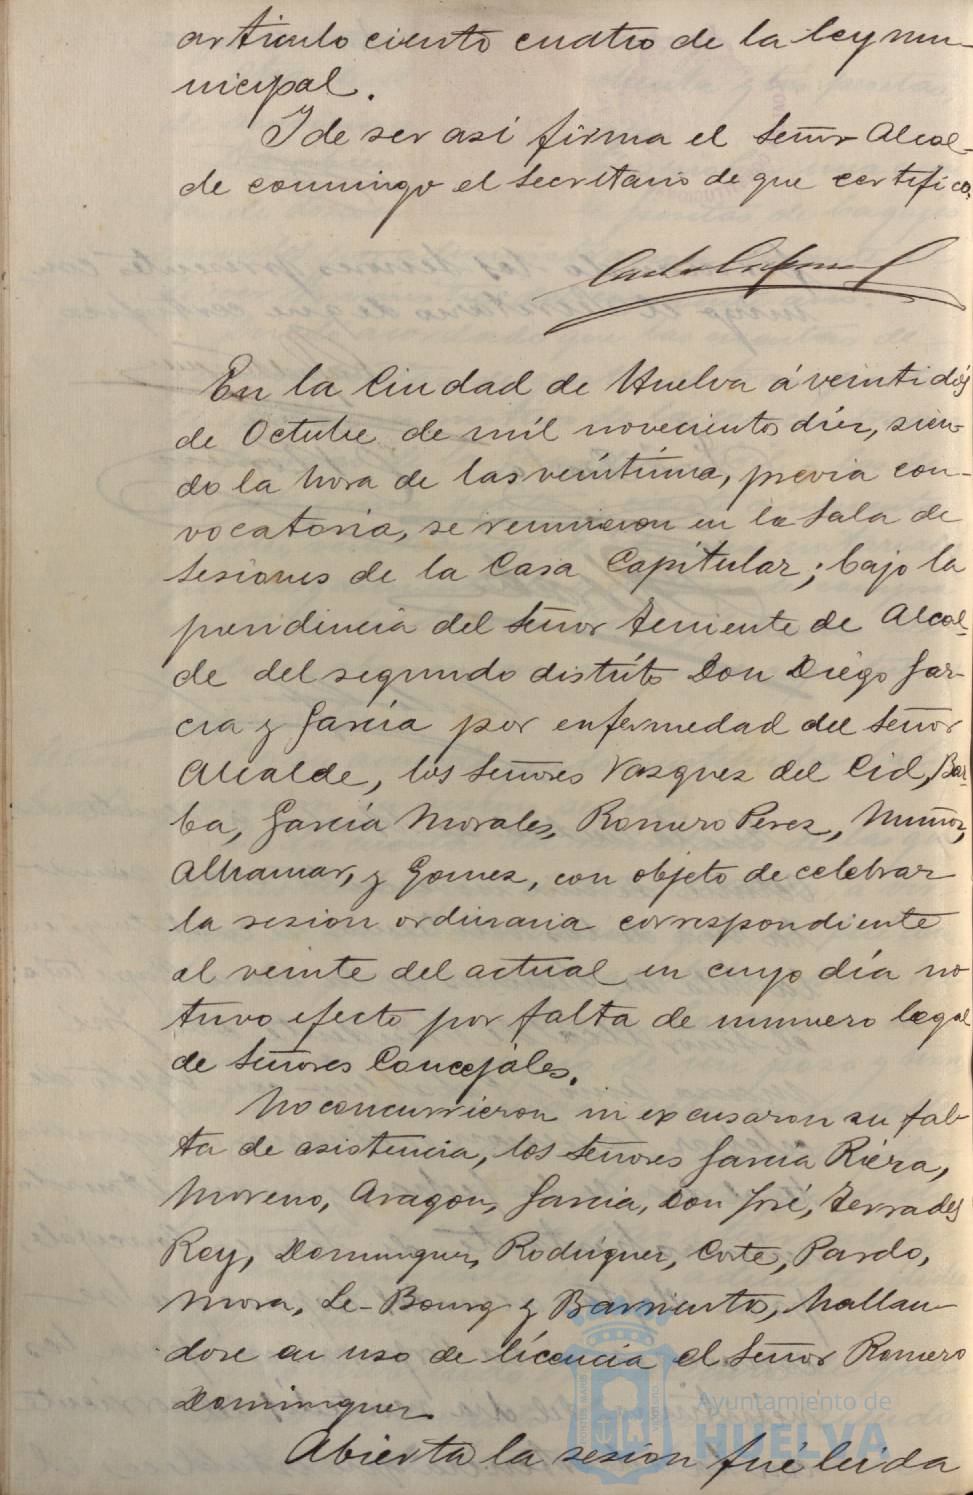 articulo ciento cuatro de la ley mu-
nicipal.
I de ser así firma el Señor Alcal-
de conmigo el Secretario de que certifico.
En la Ciudad de Huelva á veintidós
de Octubre de mil novecientos diez, sien-
do la hora de las veintiuna, previa con-
vocatoria, se reunieron en la Sala de
Sesiones de la Casa Capitular; bajo la
presidencia del Señor Teniente de Alcal-
de del segundo distrito Don Diego Gar-
cia y García por enfermedad del Señor
Alcalde, los Señores Vazquez del Cid, Bar-
ba, García Morales, Romero Perez, Muñoz,
Alhamar, y Gomez, con objeto de celebrar
la sesion ordinaria correspondiente
al veinte del actual en cuyo día no
tuvo efecto por falta de numero legal
de Señores Concejales.
No concurrieron ni excusaron su fal-
ta de asistencia, los Señores García Riera,
Moreno, Aragon, Garcia, Don José, Terrades
Rey, Dominguez, Rodriguez, Corte, Pardo,
Mora, Le-Bourg y Barriento, hallan-
dose en uso de licencia el Señor Romero
Dominguez.
Abierta la sesion fué leida
Ayuntamiento de
HUELVA